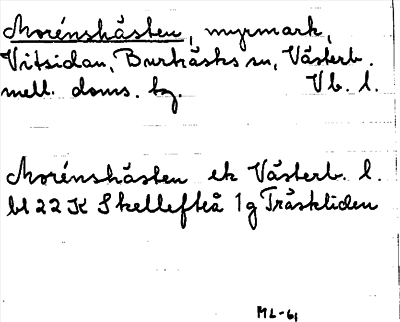 Morénshåsten, myrmark,
Vitsidan, Burträsks sn, Västerb.
mell. doms. tg. Vb. l.
Morénshåsten ek Västerb. l.
bl 22 K Skellefteå 1g Träskliden
ML-61